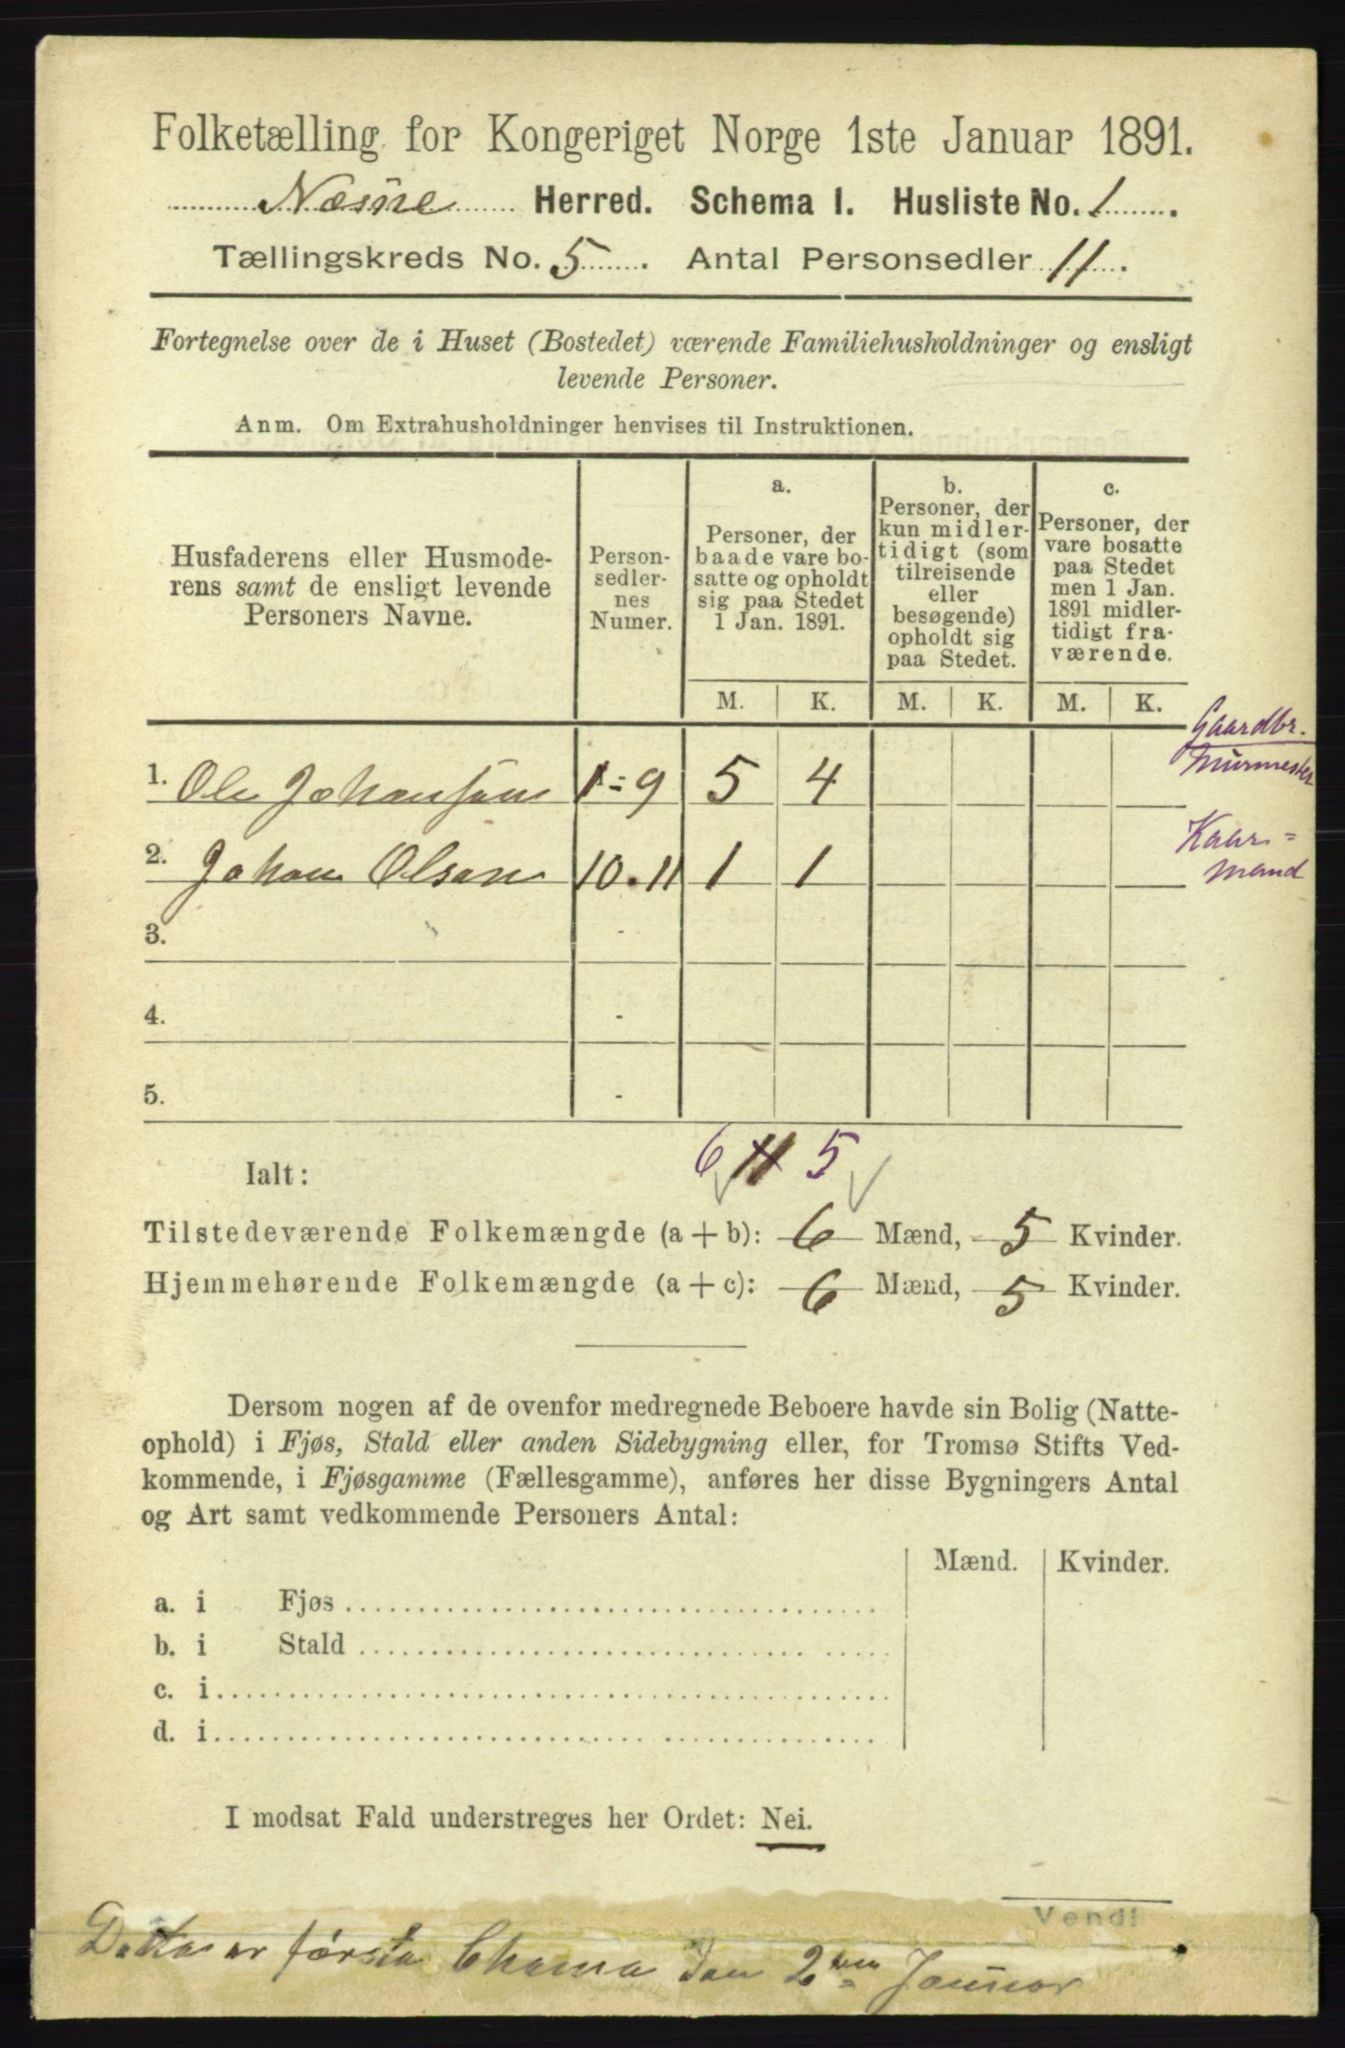 Folketælling for Kongeriget Norge 1ste Januar 1891.
Næsne Herred. Schema I. Husliste No. 1.
Tællingskreds No. 5. Antal Personsedler 11.
Fortegnelse over de i Huset (Bostedet) værende Familiehusholdninger og ensligt
levende Personer.
Anm. Om Extrahusholdninger henvises til Instruktionen.
Husfaderens eller Husmode-
rens samt de ensligt levende
Personers Navne.
Person-
sedler-
nes
Numer.
a.
Personer, der
baade vare bo-
satte og opholdt
sig paa Stedet
1 Jan. 1891.
b.
Personer, der
kun midler-
tidigt (som
tilreisende
eller
besøgende)
opholdt sig
paa Stedet.
c.
Personer, der
vare bosatte
paa Stedet
men 1 Jan.
1891 midler-
tidigt fra-
værende.
M. K. M. K. M. K.
Gaardbr.
Murmester
1. Ole Johansen 1-9 5 4
Kaar-
mand
2. Johan Olsen 10-11 1 1
3. -
4. -
5. -
6 11 5
Ialt:
Tilstedeværende Folkemængde (a + b): 6 Mænd, 5 Kvinder.
Hjemmehørende Folkemængde (a + c): 6 Mænd, 5 Kvinder.
Dersom nogen af de ovenfor medregnede Beboere havde sin Bolig (Natte-
ophold) i Fjøs, Stald eller anden Sidebygning eller, for Tromsø Stifts Ved-
kommende, i Fjøsgamme (Fællesgamme), anføres her disse Bygningers Antal
og Art samt vedkommende Personers Antal:
Mænd. Kvinder.
a. i Fjøs
b. i Stald
c. i
d. i
I modsat Fald understreges her Ordet: Nei.
Vend!
første den 2 Januar